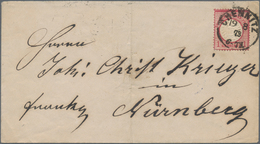 CHEMNITZ
Herrn
Joh: Christ Krieger
in
franko Nürnberg